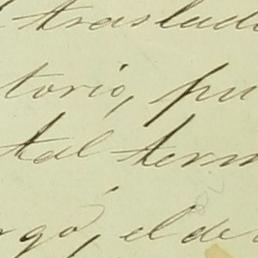 traslado
torio, pu
tal term
rgó, el de